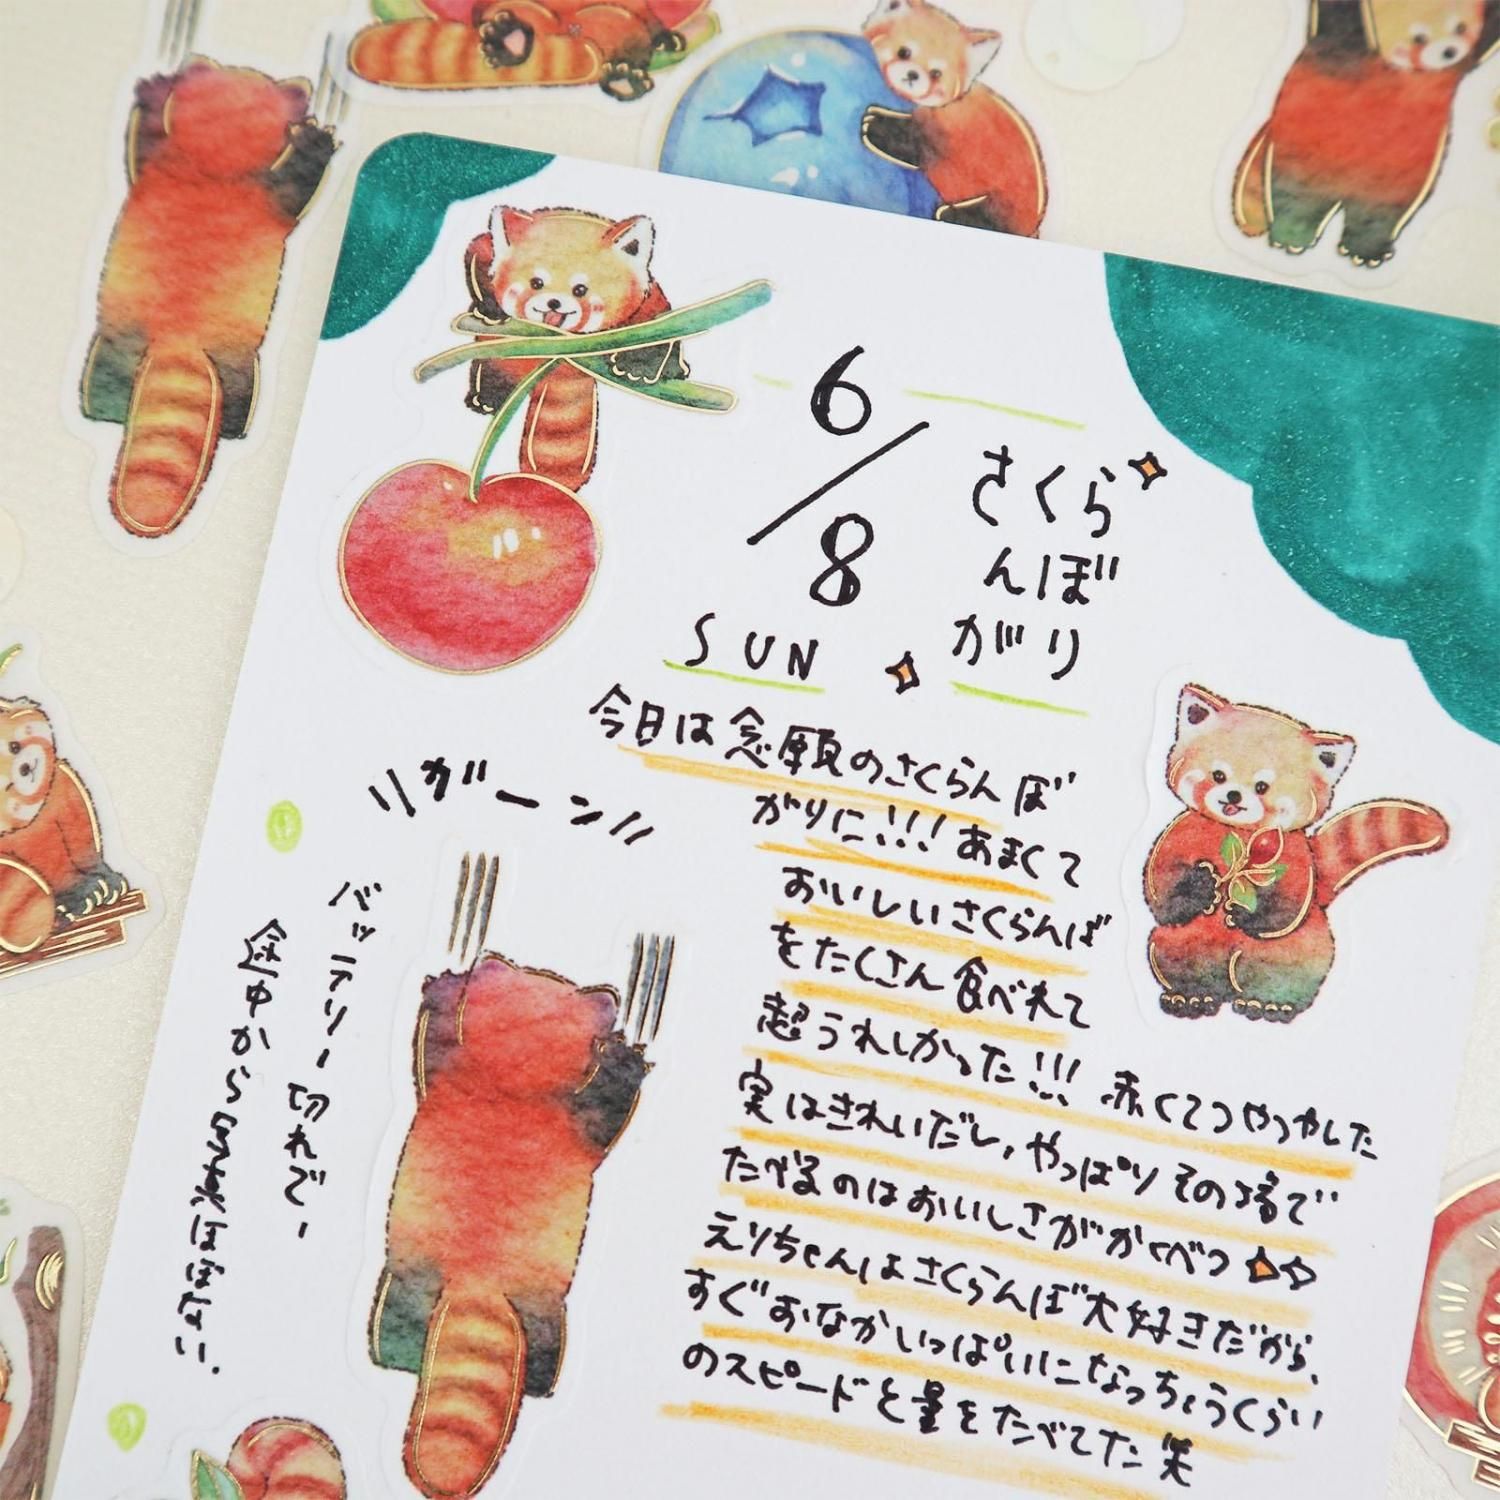 6/8
SUN
さくら
んぼ
がり
今日は念願のさくらんぼ
がりに!!!あまくて
おいしいさくらんぼ
をたくさん食べれて
超うれしかった!!!赤くてつやつやした
実はきれいだし,やっぱりその場で
たべるのはおいしさがかくべつ
えりちゃんはさくらんぼ大好きだから、
すぐおなかいっぱいになっちょうくらい
のスピードと量をたべてた笑
ガーン
バッテリー切れで
途中から写真はほぼない.